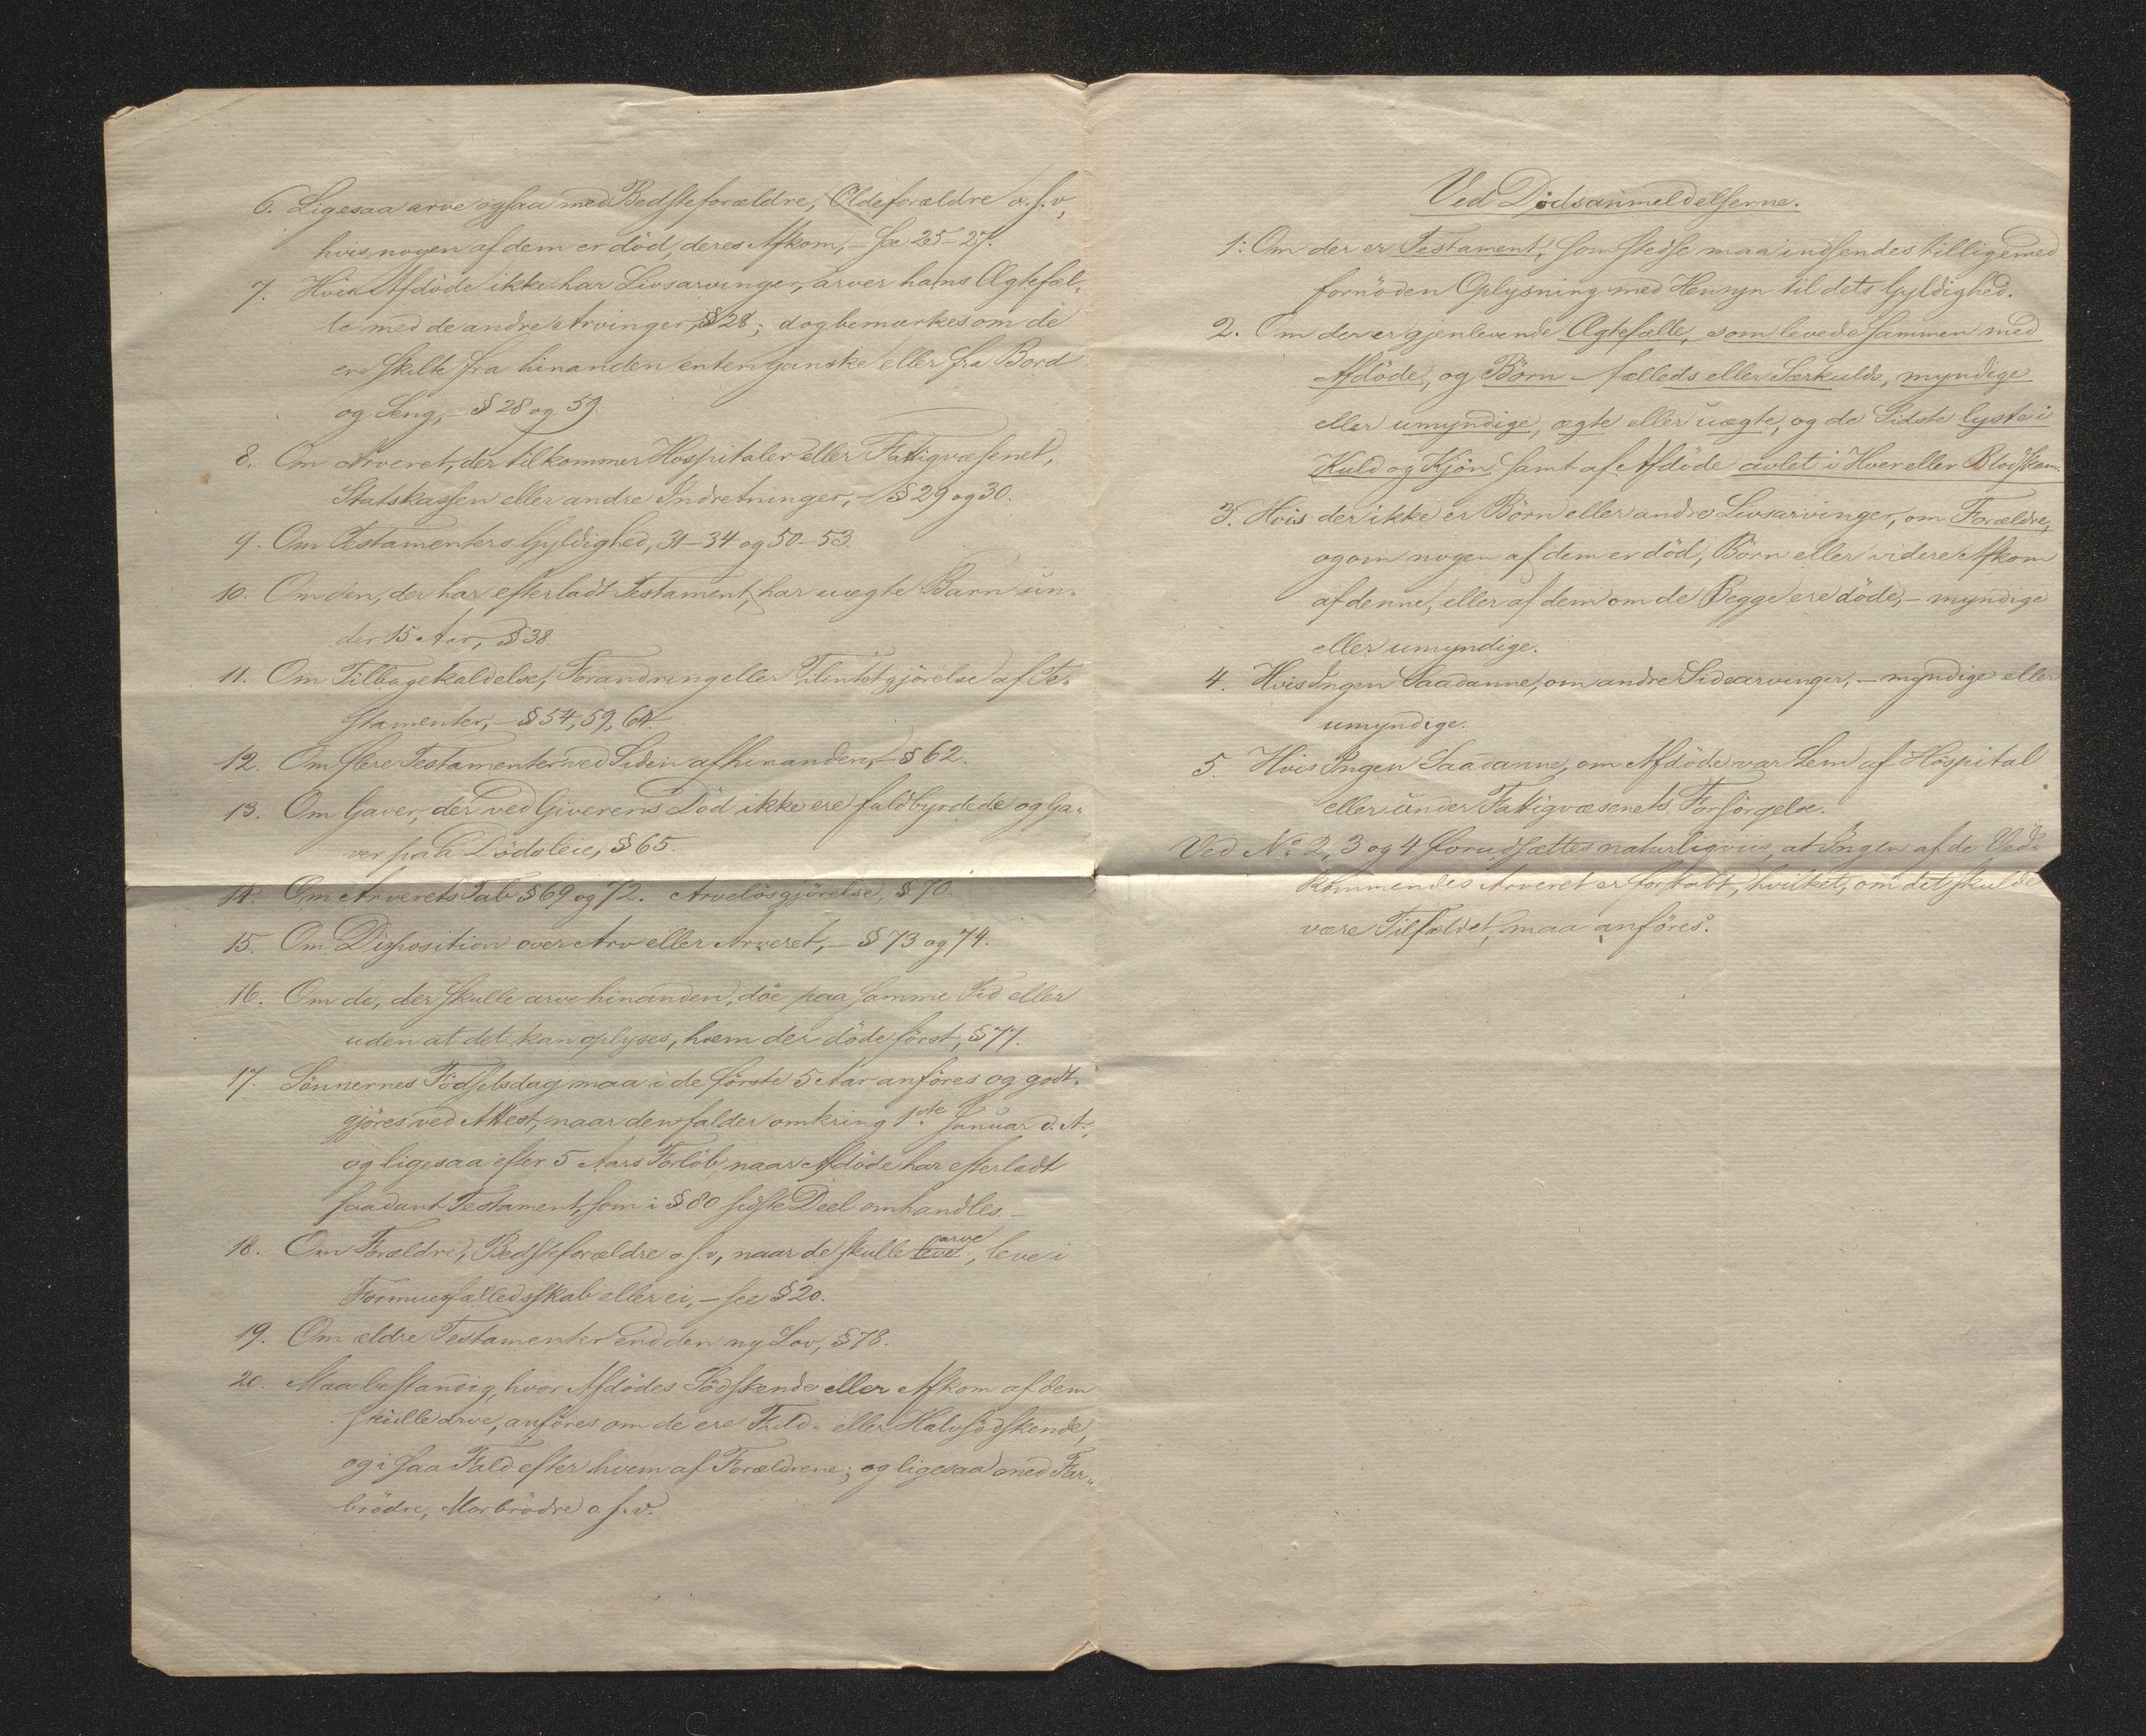 6. Ligesaa arve ogsaa med Bedsteforældre, Oldeforældre o.s.v,
hvis nogen af dem er död, deres Afkom, – See 25–27.
7. Hvis Afdöde ikke har Livsarvinger, arver hans Ægtefæl-
le med de andre Arvinger, § 28; dog bemærkes om de
ere skilte fra hinanden enten ganske eller fra Bord
og Seng, – § 28 og 59.
8. Om Arveret, der tilkommer Hospitaler eller Fattigvæsenet,
Statskassen eller andre Indretninger, – § 29 og 30.
9. Om Testamenters Gyldighed, 31–34 og 50–53.
10. Om den, der har efterladt Testament, har uægte Barn un-
der 15 Aar, § 38.
11. Om Tilbagekaldelse, Forandring eller Tilintetgjörelse af Te-
stamenter, – § 54, 59, 64
12. Om flere Testamenter ved Siden af hinanden, – § 62.
13. Om Gaver, der ved Giverens Död ikke ere fuldbyrdede og Ga-
ver paa Dödsleie, § 65.
14. Om Arverets Tab § 69 og 72. Arvelösgjörelse, § 70.
15. Om Disposition over Arv eller Arveret, – § 73 og 74.
16. Om de, der skulle arve hinanden, döe paa samme Tid eller
uden at det kan oplyses, hvem der döde först, § 77.
17. Sönnernes Födselsdag maa i de förste 5 Aar anföres og godt-
gjöres ved Attest, naar den falder omkring 1ste Januar d. A.,
og ligesaa efter 5 Aars Forlöb, naar Afdöde har efterladt
saadant Testament, som i § 80 sidste Deel omhandles. –
18. Om Forældre, Bedsteforældre o.s.v, naar de skulle leve arve, leve i
Formuesfælledsskab eller ei, – see § 20.
19. Om ældre Testamenter end den ny Lov, § 78.
20. Maa bestandig, hvor Afdödes Södskende eller Afkom af dem
skulle arve, anföres om de ere Fuld- eller Halvsödskende,
og i saa Fald efter hvem af Forældrene; og ligesaa med Far-
brödre, Morbrödre o.s.v.
Ved Dødsanmeldelserne.
1. Om der er Testament, som stedse maa indsendes tilligemed
fornöden Oplysning med Hensyn til dets Gyldighed.
2. Om der er gjenlevende Ægtefælle, som levede sammen med
Afdöde, og Börn – fælleds eller Særkulds, myndige
eller umyndige, ægte eller uægte, og de Sidste lyste i
Kuld og Kjön, samt af Afdöde avlet i Hoer eller Blodskam.
3. Hvis der ikke er Börn eller andre Livsarvinger, om Forældre,
og om nogen af dem er död, Börn eller videre Afkom
af denne, eller af dem om de Begge ere döde, – myndige
eller umyndige.
4. Hvis Ingen Saadanne, om andre Sidearvinger, – myndige eller
umyndige.
5. Hvis Ingen Saadanne, om Afdöde var Lem af Hospital
eller under Fattigvæsenets Forsörgelse.
Ved No 2, 3 og 4 forudsættes naturligviis, at Ingen af de Ved-
kommendes Arveret er fortabt, hvilket, om det skulde
være Tilfældet, maa anföres.